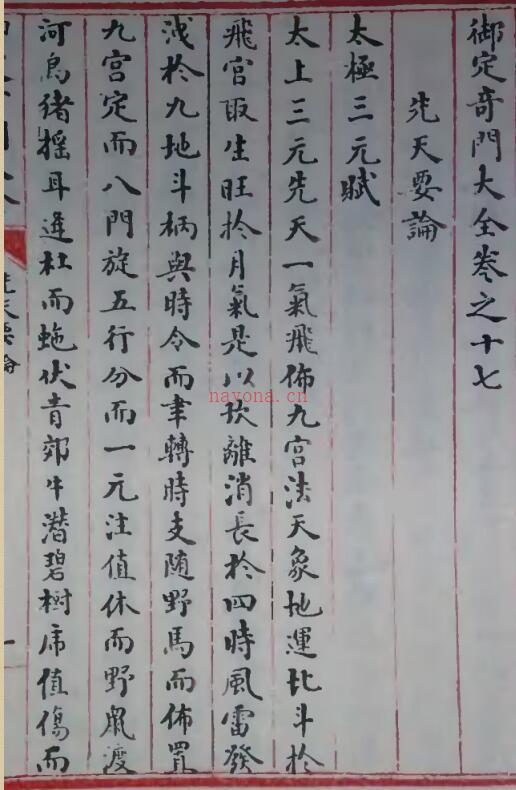 御定奇門大全卷之十七
先天要論
太極三元賦
太上三元先天一氣飛佈九宮法天象地運北斗於
飛宮取生旺於月氣是以坎離消長於四時風雷發
洩於九地斗柄與時令而聿轉時支随野馬而佈置
九宮定而八門旋五行分而一元注值休而野鼠渡
河烏猪摇耳逢杜而虵伏青郊牛潛碧樹虎值傷而
先天要論
一
nayona.cn